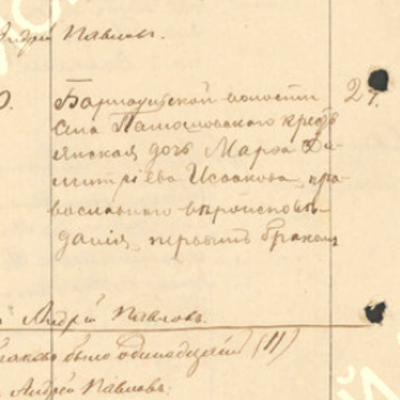 Андрей Павлов.
Барнаульской волости 27.
села Памошовского кресть
янская дочь Марфа Ди-
митріева Исакова, пра-
вославнаго вѣроисповѣ-
данія, первымъ бракомъ
Андрей Павловъ.
было одиннадцать (11)
Андрей Павловъ.